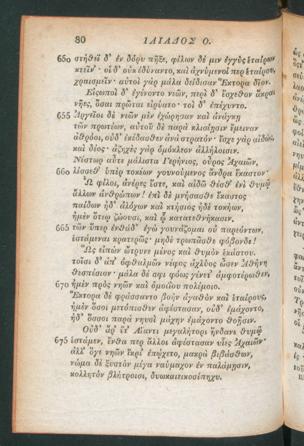 80 ΙΛΙΑΔΟΣ Ο.
650 στήθεϊ δ' ἐν δόρυ πῆξε, φίλων δέ μιν ἐγγὺς ἑταίρων
κτεῖν'· οἱ δ' οὐκ ἐδύναντο, καὶ ἀχνύμενοί περ ἑταίρου,
χραισμεῖν· αὐτοὶ γὰρ μάλα δείδισαν Ἕκτορα δῖον.
Εἰσωποὶ δ' ἐγένοντο νεῶν, περὶ δ' ἔσχεθον ἄκραι
νῆες, ὅσαι πρῶται εἰρύατο· τοὶ δ' ἐπέχυντο.
655 Ἀργεῖοι δὲ νεῶν μὲν ἐχώρησαν καὶ ἀνάγκῃ
τῶν πρωτέων, αὐτοῦ δὲ παρὰ κλισίῃσιν ἔμειναν
ἀθρόοι, οὐδ' ἐκέδασθεν ἀνὰ στρατόν· ἴσχε γὰρ αἰδὼς
καὶ δέος· ἀζηχὲς γὰρ ὁμόκλεον ἀλλήλοισιν.
Νέστωρ αὖτε μάλιστα Γερήνιος, οὖρος Ἀχαιῶν,
660 λίσσεθ' ὑπὲρ τοκέων γουνούμενος ἄνδρα ἕκαστον·
Ὦ φίλοι, ἀνέρες ἔστε, καὶ αἰδῶ θέσθ' ἐνὶ θυμῷ
ἄλλων ἀνθρώπων! ἐπὶ δὲ μνήσασθε ἕκαστος
παίδων ἠδ' ἀλόχων καὶ κτήσιος ἠδὲ τοκήων,
ἠμὲν ὅτεῳ ζώουσι, καὶ ᾧ κατατεθνήκασιν.
665 τῶν ὕπερ ἐνθάδ' ἐγὼ γουνάζομαι οὐ παρεόντων,
ἑστάμεναι κρατερῶς· μηδὲ τρωπᾶσθε φόβονδε!
Ὣς εἰπὼν ὤτρυνε μένος καὶ θυμὸν ἑκάστου.
τοῖσι δ' ἀπ' ὀφθαλμῶν νέφος ἀχλύος ὦσεν Ἀθήνη
θεσπέσιον· μάλα δέ σφι φόως γένετ' ἀμφοτέρωθεν,
670 ἠμὲν πρὸς νηῶν καὶ ὁμοιΐου πολέμοιο.
Ἕκτορα δὲ φράσσαντο βοὴν ἀγαθὸν καὶ ἑταίρους,
ἠμὲν ὅσοι μετόπισθεν ἀφέστασαν, οὐδ' ἐμάχοντο,
ἠδ' ὅσσοι παρὰ νηυσὶ μάχην ἐμάχοντο θοῇσιν.
Οὐδ' ἄρ' ἔτ' Αἴαντι μεγαλήτορι ἥνδανε θυμῷ
675 ἑστάμεν, ἔνθα περ ἄλλοι ἀφέστασαν υἷες Ἀχαιῶν·
ἀλλ' ὅγε νηῶν ἴκρι' ἐπῴχετο, μακρὰ βιβάσθων,
νώμα δὲ ξυστὸν μέγα ναύμαχον ἐν παλάμῃσιν,
κολλητὸν βλήτροισι, δυωκαιεικοσίπηχυ.